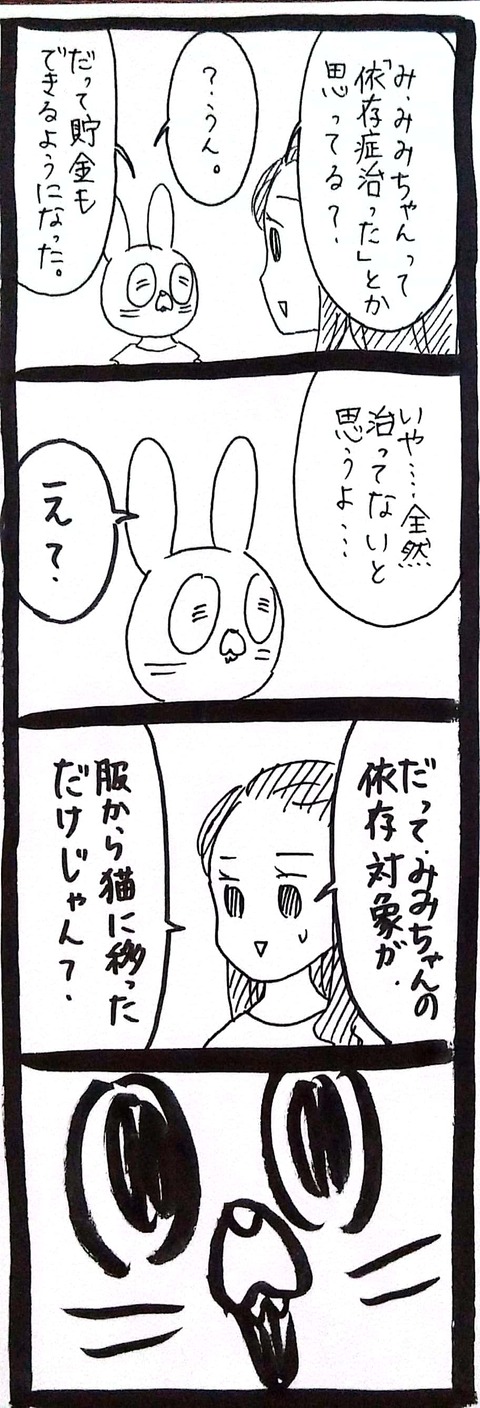 み、みみちゃんって
「依存症治った」とか
思ってる？
？うん。
だって貯金も
できるようになった。
いや……全然
治ってないと
思うよ……
え？
だって、みみちゃんの
依存対象が、
服から猫に移った
だけじゃん？